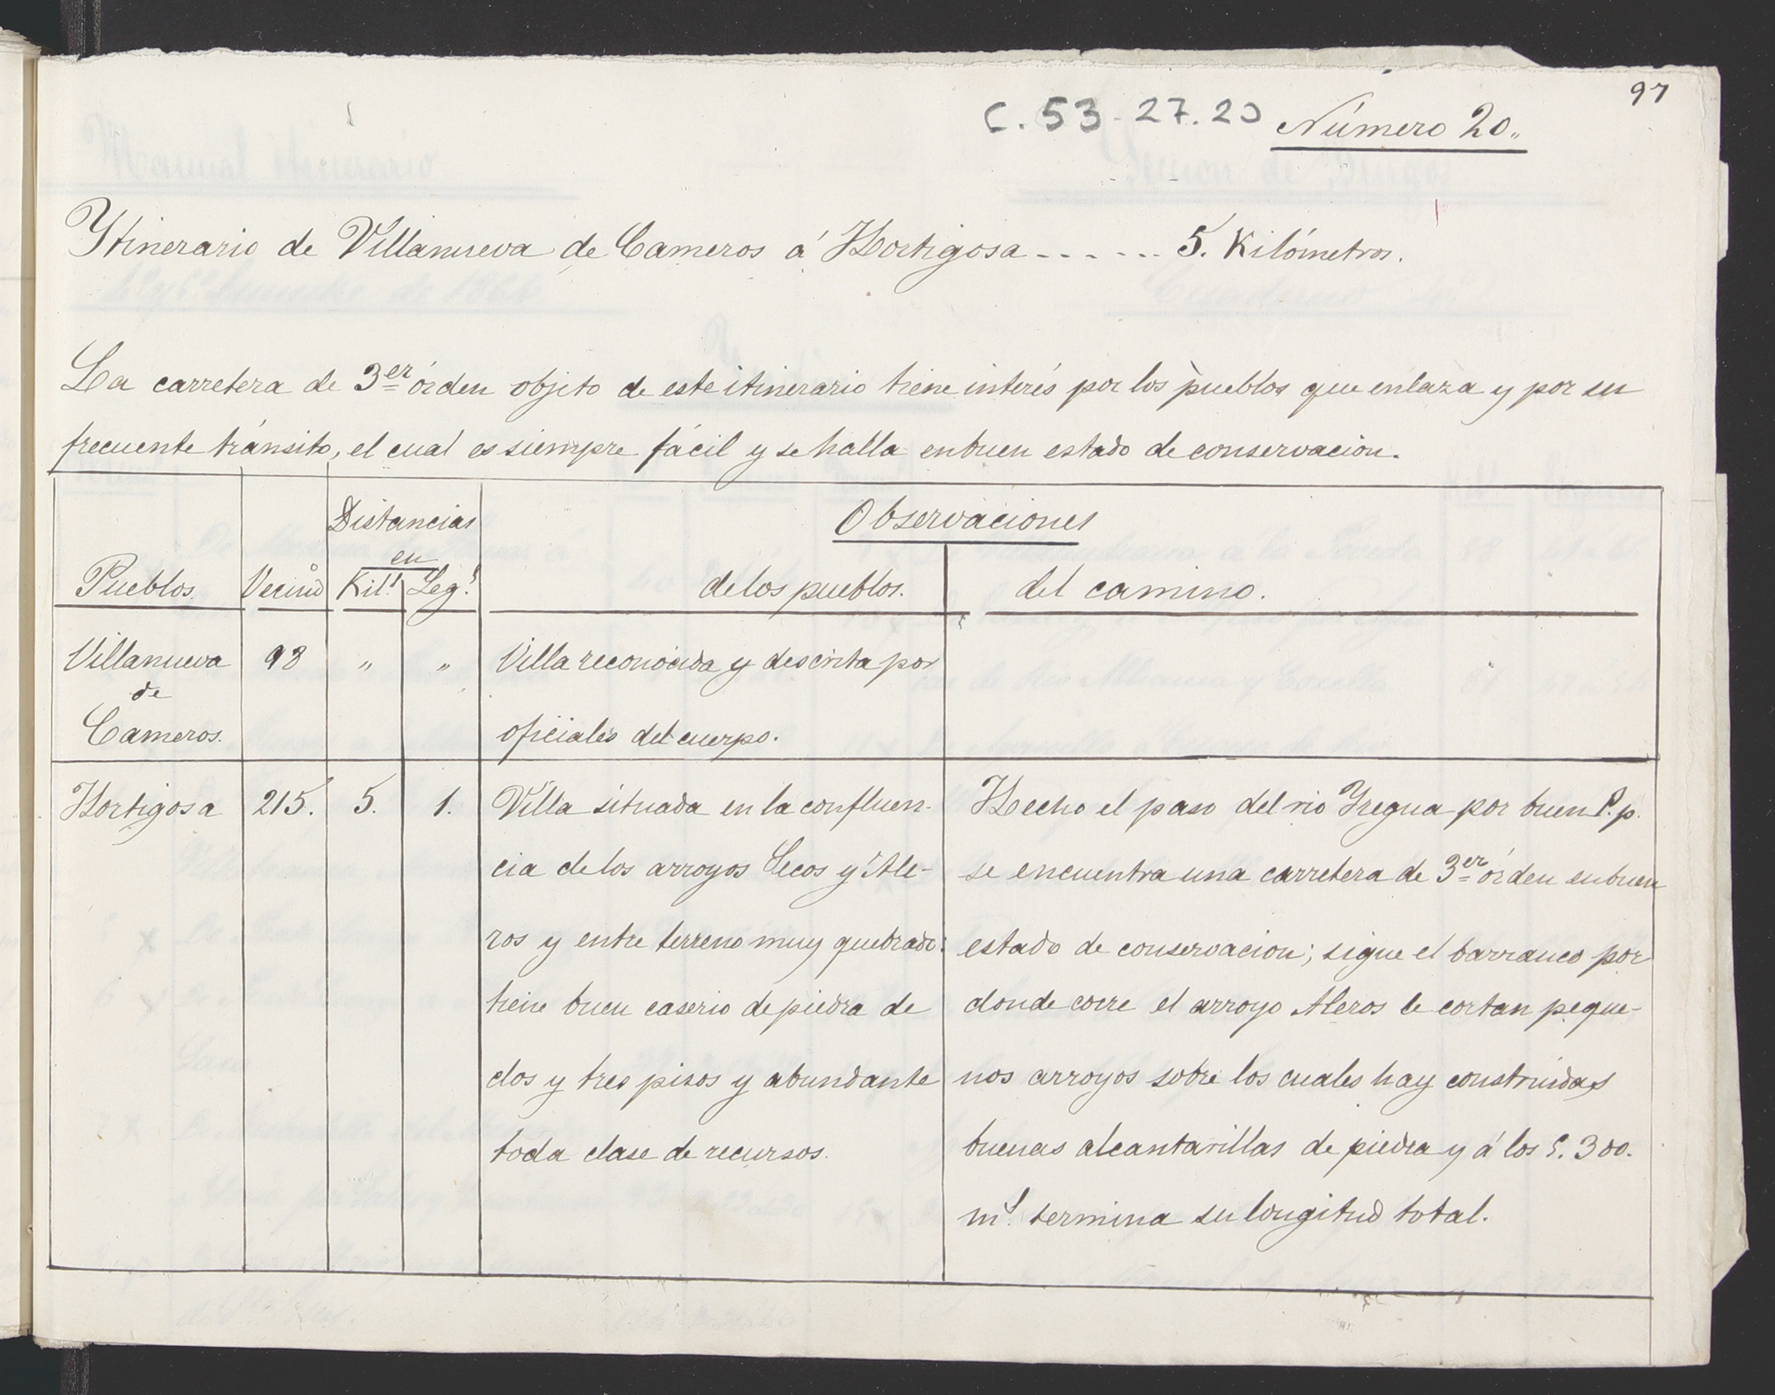 97
C. 53-27.20 Número 20„
Ytinerario de Villanueva de Cameros á Hortigosa ------ 5. Kilómetros.
La carretera de 3er órden objeto de este itinerario tiene interés por los pueblos que enlaza y por su
frecuente tránsito, el cual es siempre fácil y se halla en buen estado de conservacion.
Distancias
en
Observaciones
Pueblos. Vecind.o Kil.s Leg.s de los pueblos. del camino.
Villanueva 98 „ „ Villa reconocida y descrita por
de
Cameros. oficiales del cuerpo.
Hortigosa 215. 5. 1. Villa situada en la confluen- Hecho el paso del rio Yregua por buen P. p.
cia de los arroyos Secos y Ale- se encuentra una carretera de 3er órden en buen
ros y entre terreno muy quebrado: estado de conservacion; sigue el barranco por
tiene buen caserio de piedra de donde corre el arroyo Aleros le cortan peque-
dos y tres pisos y abundante nos arroyos sobre los cuales hay construidas
toda clase de recursos. buenas alcantarillas de piedra y á los 5.300.
m.s termina su longitud total.